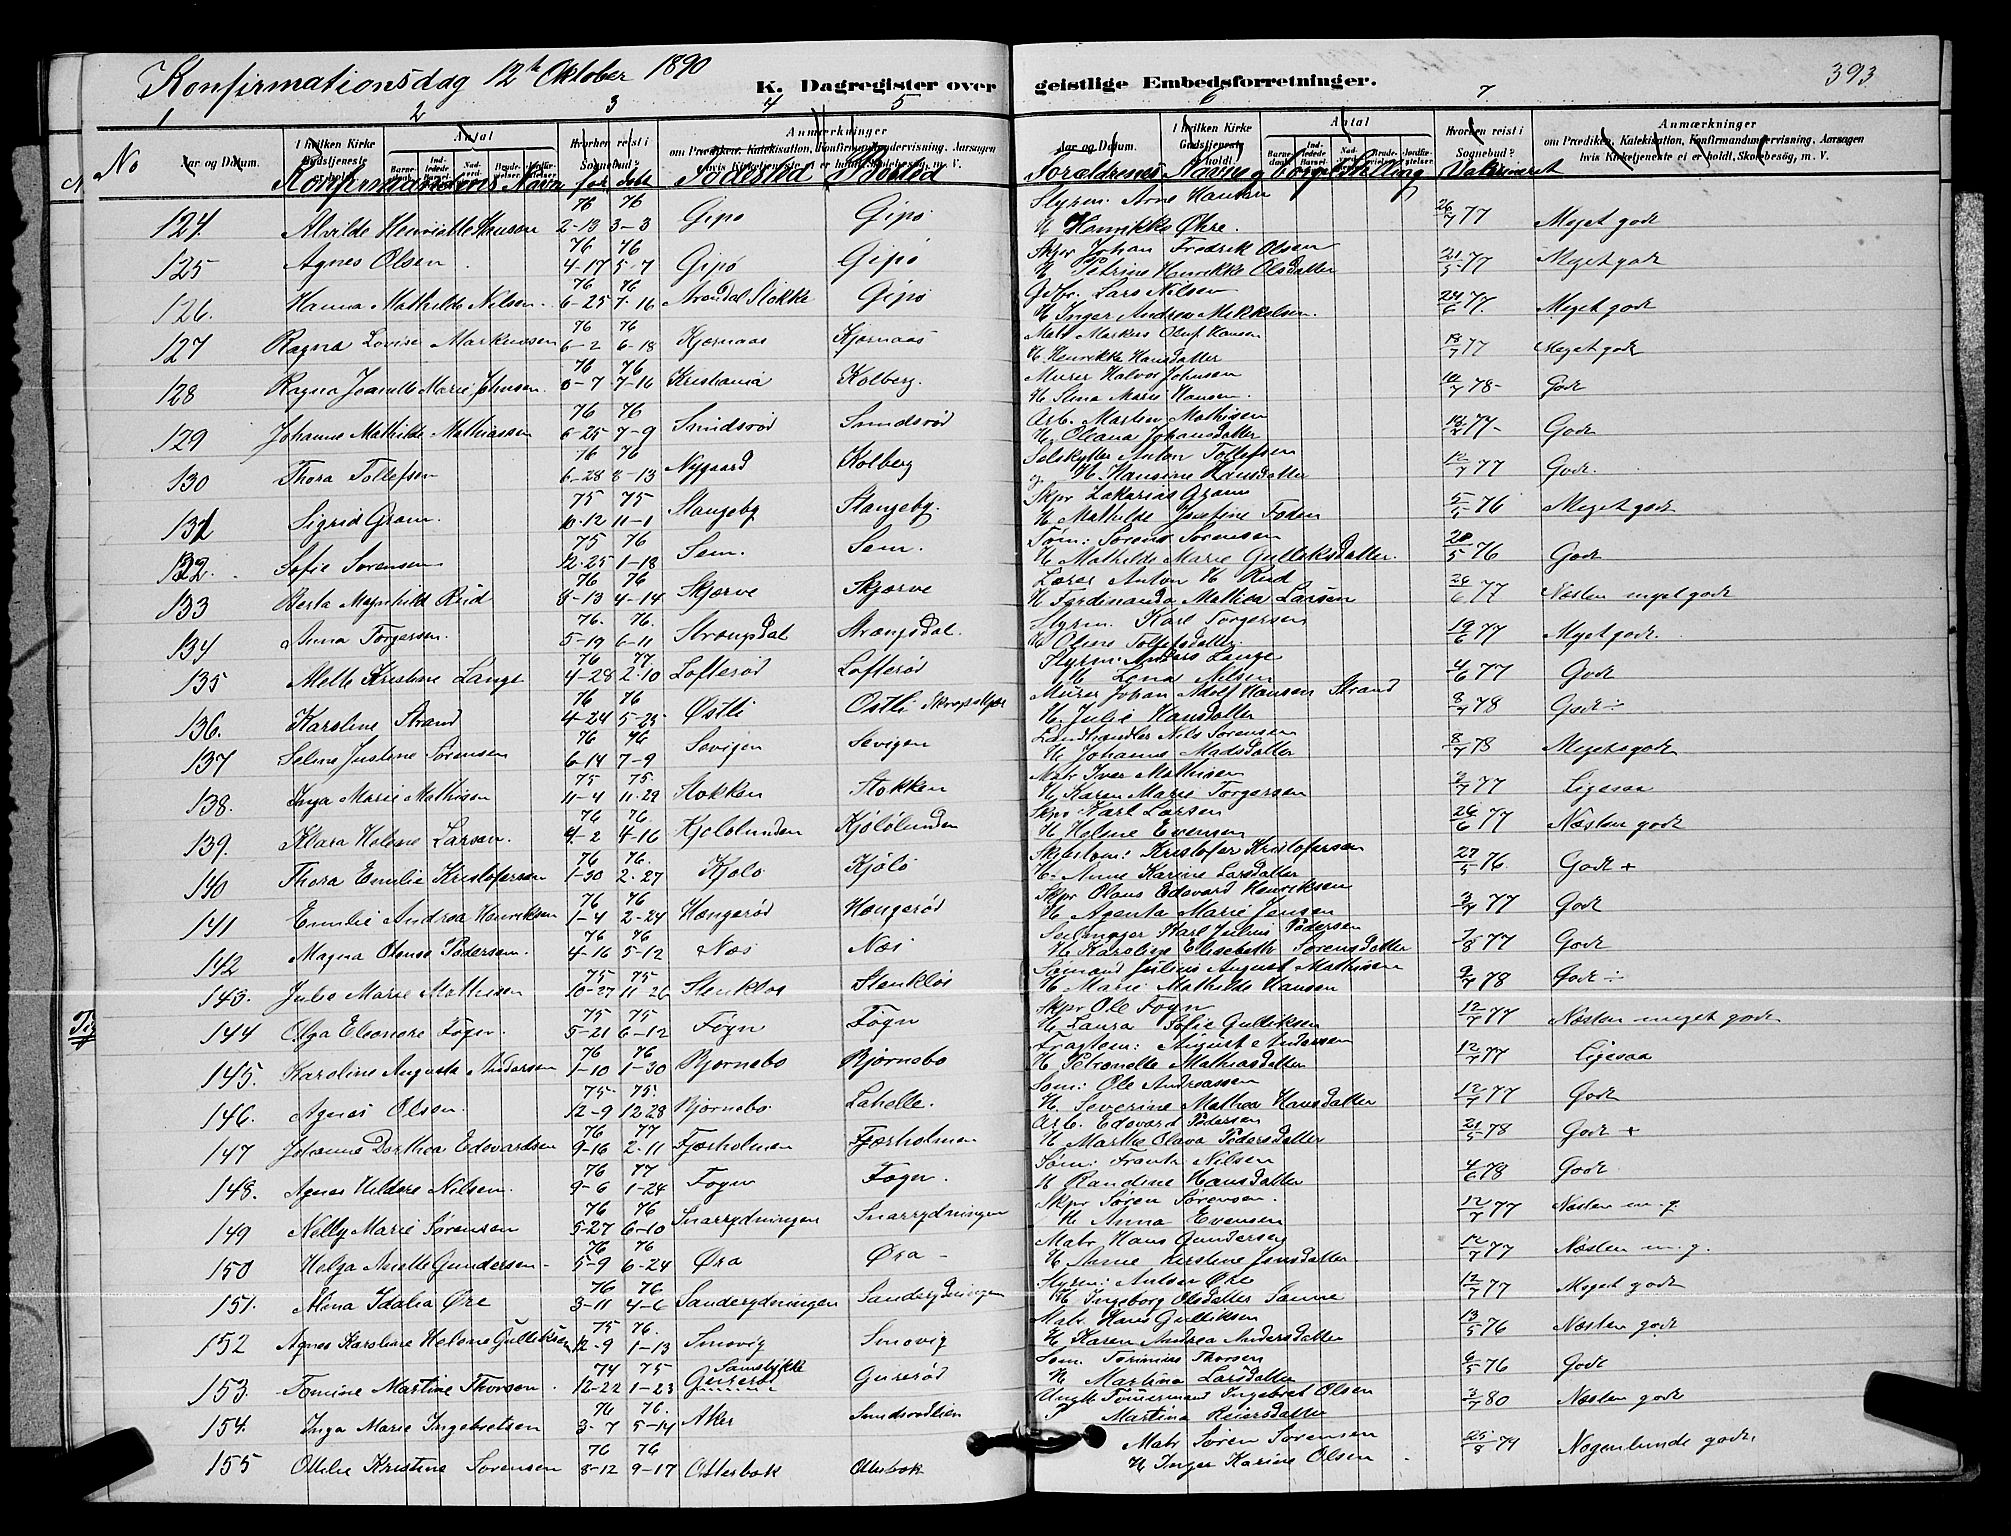 Konfirmationsdag 12te Oktober 1890
K. Dagregister over geistlige Embedsforretninger.
393
1 2 3 4 5 6 7
Aar og Datum. I hvilken Kirke Gudstjeneste er holdt. Antal Hvorhen reist i Sognebud? Anmærkninger om Prædiken, Katekisation, Konfirmandundervisning, Aarsagen hvis Kirketjeneste ei er holdt, Skolebesøg, m. V.
No Konfirmandens Navn før døbt Fødested Bosted Forældrenes Navn og Borgel. Stilling Vakcineret
124. Alvilde Henriette Hansen 76 2-13 76 3-3 Gipø Gipø Styrm. Arne Hansen H. Henrikke Økre. 26/7 77 Meget godt
125 Agnes Olsen 76 4-17 76 5-7 Gipø Gipø Skpr Johan Fredrik Olsen H. Petrine Henrikke Olsdatter 21/5 77 Meget godt
126. Hanna Mathilde Nilsen 76 6-25 76 7-16 Arendal Stokke Gipø Gdbr. Lars Nilsen H. Inger Andrea Mikkelsen. 24/6 77. Meget godt
127 Ragna Lovise Markussen 76 6-2 76 6-18 Kjærnaas Kjærnaas Matr Markus Oluf Hansen H. Henrikke Hansdatter 18/7 77 Meget godt
128 Ragna Jeanette Marie Johnsen 76 6-7 76 7-16 Kristiania Kolberg. Murer Halvor Johnsen H. Stina Marie Hansen. 78- Godt
129 Johanne Mathilde Mathiassen 76 6-25 76 7-9 Smidsrød Smidsrød Arb. Martin Mathisen H. Oleana Johansdatter 77- Godt
130 Thora Tollefsen 76 6-28 76 8-13 Nygaard Kolberg Selskytter Anton Tollefsen H. Hansine Hansdatter 12/7 77 Godt.
131 Sigrid Gram. 75 10-12 75 11-1 Stangeby Stangeby. Skpr Zakarias Gram H. Mathilde Josefine Foden 5/5 76 Meget godt
132. Sofie Sorensen 75 12-25 76 1-18 Sem. Sem. Tøm: Sorens Sorensen H. Mathilde Marie Gulliksdatter. 20/5 76 Godt
133 Berta Magnhild Rud 76 3-13 76 4-14 Skjærve Skjærve Lærer Anton H. Rud H. Ferdinanda Mathea Larsen 26/6 77 Næsten meget godt
134 Anna Torgersen. 76. 5-19 76. 6-11 Strængsdal Strængsdal. Styrm. Karl Torgersen H. Oline Tollefsdatter 19/6 77 Meget godt.
135 Mette Kristine Lange 76 4-28 77 2-10 Lofterød Lofterød Styrm: Anders Lange H. Lena Nilsen 4/6 77 Godt
136. Karoline Strand 76 4-24 76 5-25 Østli Østli Murer Johan Adolf Hansen Strand H. Julie Hansdatter 8/7 78 Godt ÷
137 Selma Justine Sørensen 76 6-14 76 7-9 Sevigen Sevigen Landhandler Nils Sørensen H. Johanne Madsdatter 8/7 78 Meget godt
138. Inga Marie Mathisen 75 11-4 75. 11-29 Stokken Stokken Matr Iver Mathisen H. Karen Marie Torgersen 77 Ligesaa
139. Klara Helene Larsen. 76 4-2 76 4-16 Kjølølunden Kjølølunden Skpr Karl Larsen H. Helene Evensen 26/6 77 Næsten godt
140 Thora Emilie Kristofersen 76 1-30 76. 2-27 Kjølø Kjølø Skibstøm: Kristofer Kristofersen H. Anne Karine Larsdatter 27/5 76. Godt +
141 Emilie Andrea Henriksen 76 1-4 76 2-24 Hængerød Hængerød Skpr Olaus Edevard Henriksen H. Agenta Marie Jensen 77 Godt
142 Magna Olense Pedersen. 76 4-16 76 5-12 Næs Næs Seilmager Karl Julius Pedersen H. Karoline Elisabeth Sørensdatter 77 Godt
143. Julie Marie Mathisen 75 10-27 75 11-26 Stenkløs Stenkløs Sømand Julius August Mathisen H. Marie Mathilde Hansen 9/7 78 Godt ÷
144 Olga Eleonore Føgn. 75 5-21 75 6-12 Føgn Føgn Skpr Ole Føgn H. Laura Sofie Gulliksen 12/7 77 Næsten meget godt
145. Karoline Augusta Andersen 76 1-10 76 1-30 Bjørnebo Bjørnebo Fragtem: August Andersen H. Petronelle Mathiasdatter 12/7 77 Ligesaa
146. Agnes Olsen. 75- 12-9 75. 12 28 Bjørnebo Lahelle. Søm: Ole Andreassen H. Severine Mathea Hansdatter 12/7 77 Godt
147 Johanne Dorthea Edevardsen 76 9-16 77 2-11 Fjærholmen Fjærholmen Arb. Edevard Pedersen H. Marthe Olava Pedersdatter 21/5 78 Godt +
148. Agnes Hildore Nilsen. 76 9-6 77 1-24 Føgn Føgn. Søm: Frantz Nilsen H. Randine Hansdatter 4/6 78 Godt
149 Nelly Marie Sørensen 76 5-27 76 6-10 Snarrydningen Snarrydningen Skpr Søren Sørensen. H. Anna Evensen 12/7 77 Næsten m. g.
150 Helga Anette Gundersen- 76 5-9 76 6-24 Øra Øra - Matr Hans Gundersen H. Anne Kirstine Jansdatter 12/7 77 Næsten m. g.
151. Alma Idalia Øre 76 3-11 76 4-6 Sanderydningen Sanderydningen Styrm: Anton Øre H. Ingeborg Olsdatter Sanne 12/7 77 Meget godt
152 Agnes Karoline Helene Gulliksen 75 12-9 76. 1-13 Smøvig Smøvig Matr Hans Gulliksen H. Karen Andrea Andersdatter 13/5 76 Næsten godt
153 Tomine Martine Thorsen. 74 12-22 75 1-23 Samstykke Guserød Guserød Søm. Torinius Thorsen H. Martina Larsdatter 6/5 76 Godt
154. Inga Marie Ingebretsen 76 3-7 76. 5-14 Aker Smidsrødlien Ungk Tømermand Ingebret Olsen P. Martina Reiersdatter 3/7 80 Næsten godt
155 Otilie Kristine Sørensen 76 8-12 76 9-17 Otterbæk Otterbæk Matr Søren Sørensen H. Inger Karine Olsen 25/8 79 Nogenlunde godt.